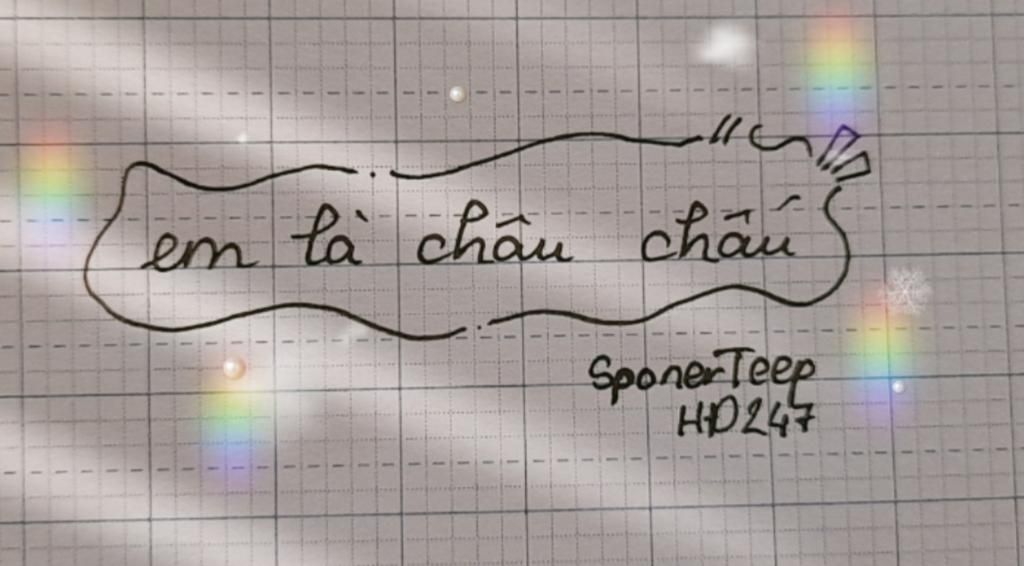 em là châu chấu
SponerTeep
HD247